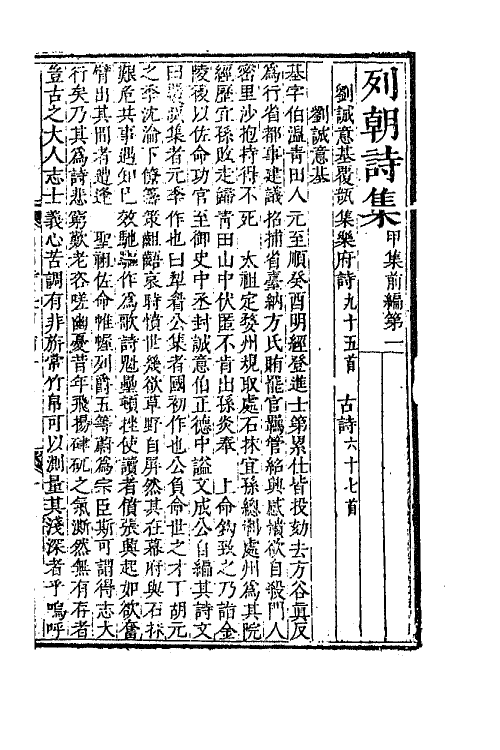 列朝詩集甲集前編第一
劉誠意基覆瓿集樂府詩九十五首　古詩六十七首
劉誠意基
基字伯溫青田人元至順癸酉明經登進士第累仕皆投劾去方谷眞反
爲行省都事建議招捕省臺納方氏賄罷官羈管紹興感憤欲自殺門人
密里沙抱持得不死　太祖定婺州規取處石抹宜孫總制處州爲其院
經歷宜孫敗走歸青田山中伏匿不肯出孫炎奉　上命鈎致之乃詣金
陵後以佐命功官至御史中丞封誠意伯正德中謚文成公自編其詩文
曰覆瓿集者元季作也曰犁眉公集者國初作也公負命世之才丁胡元
之季沈淪下僚籌策齟齬哀時憤世幾欲草野自屏然其在幕府與石抹
艱危共事遇知已效馳驅作爲歌詩魁壘頓挫使讀者僨張興起如欲奮
臂出其間者遭逢　聖祖佐命帷幄列爵五等蔚爲宗臣斯可謂得志大
行矣乃其爲詩悲窮歎老咨嗟幽憂昔年飛揚硉矹之氣澌然無有存者
豈古之大人志士義心苦調有非旂常竹帛可以測量其淺深者乎嗚呼